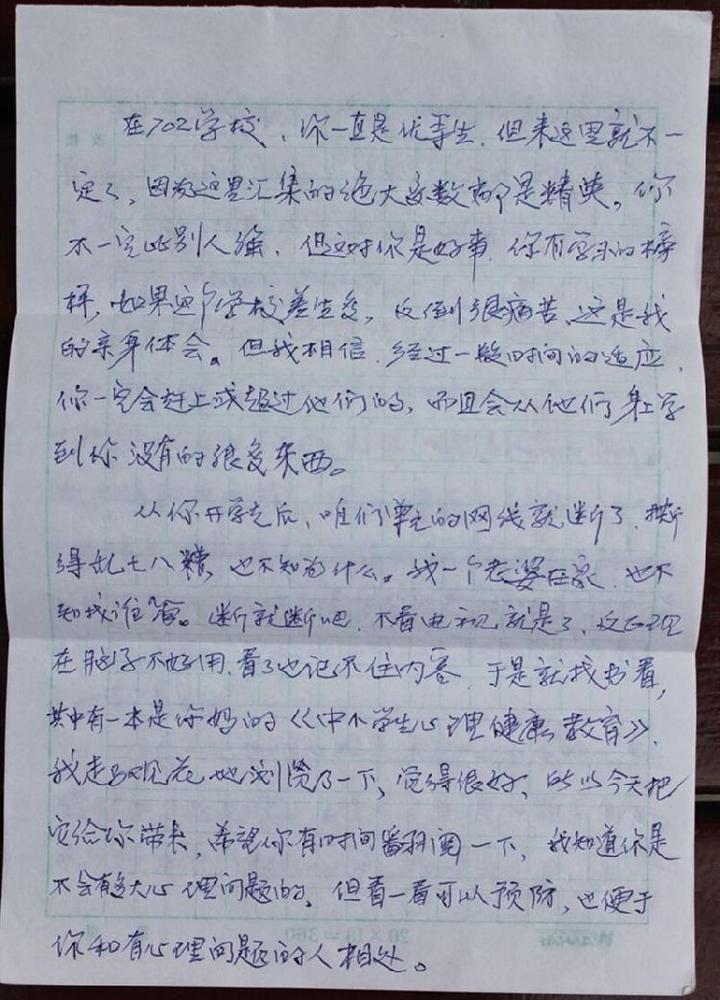 在702学校，你一直是优等生，但来这里就不一
定了，因为这里汇集的绝大多数都是精英。你
不一定比别人强，但这对你是好事，你有学习的榜
样，如果这个学校差生多，反倒很痛苦，这是我
的亲身体会。但我相信，经过一段时间的适应，
你一定会赶上或超过他们的，而且会从他们身上学
到你没有的很多东西。
从你开学走后，咱们单元的网线就断了，断
得乱七八糟，也不知为什么。我一个老婆在家，也不
知找谁管。断就断吧，不看电视就是了，反正现
在脑子不好用，看了也记不住内容，于是就找书看，
其中有一本是你妈的《中小学生心理健康教育》，
我走马观花地浏览了一下，觉得很好，所以今天把
它给你带来，希望你有时间翻阅一下，我知道你是
不会有多大心理问题的，但看一看可以预防，也便于
你和有心理问题的人相处。
20×18=360